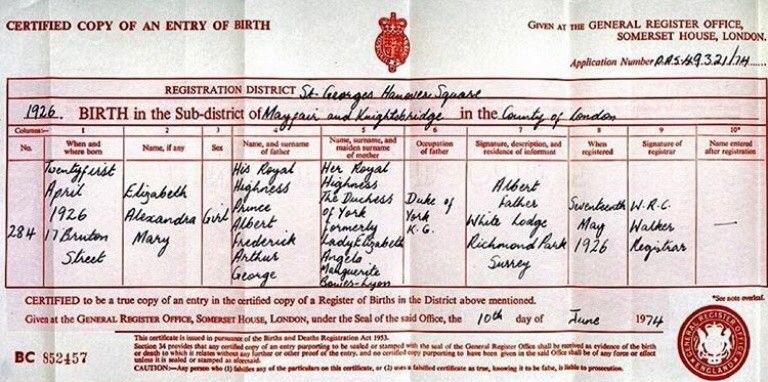 CERTIFIED COPY OF AN ENTRY OF BIRTH
GIVEN AT THE GENERAL REGISTER OFFICE,
SOMERSET HOUSE, LONDON.
Application Number P.A.S.49321/74
REGISTRATION DISTRICT St. Georges Hanover Square
1926. BIRTH in the Sub-district of Mayfair and Knightsbridge in the County of London
Columns:- 1 2 3 4 5 6 7 8 9 10*
No. When and where born Name, if any Sex Name, and surname of father Name, surname, and maiden surname of mother Occupation of father Signature, description, and residence of informant When registered Signature of registrar Name entered after registration
284
Twentyfirst
April
1926
17 Bruton
Street
Elizabeth
Alexandra
Mary
Girl
His Royal
Highness
Prince
Albert
Frederick
Arthur
George
Her Royal
Highness
The Duchess
of York
formerly
Lady Elizabeth
Angela
Marguerite
Bowes-Lyon
Duke of
York
K.G.
Albert
Father
White Lodge
Richmond Park
Surrey
Seventeenth
May
1926
W.R.C.
Walker
Registrar
—
CERTIFIED to be a true copy of an entry in the certified copy of a Register of Births in the District above mentioned.
*See note overleaf.
Given at the GENERAL REGISTER OFFICE, SOMERSET HOUSE, LONDON, under the Seal of the said Office, the 10th day of June 1974
BC 852457
This certificate is issued in pursuance of the Births and Deaths Registration Act 1953.
Section 34 provides that any certified copy of an entry purporting to be sealed or stamped with the seal of the General Register Office shall be received as evidence of the birth
or death to which it relates without any further or other proof of the entry, and no certified copy purporting to have been given in the said Office shall be of any force or effect
unless it is sealed or stamped as aforesaid.
CAUTION:—Any person who (1) falsifies any of the particulars on this certificate, or (2) uses a falsified certificate as true, knowing it to be false, is liable to prosecution.
GENERAL REGISTER OFFICE
ENGLAND